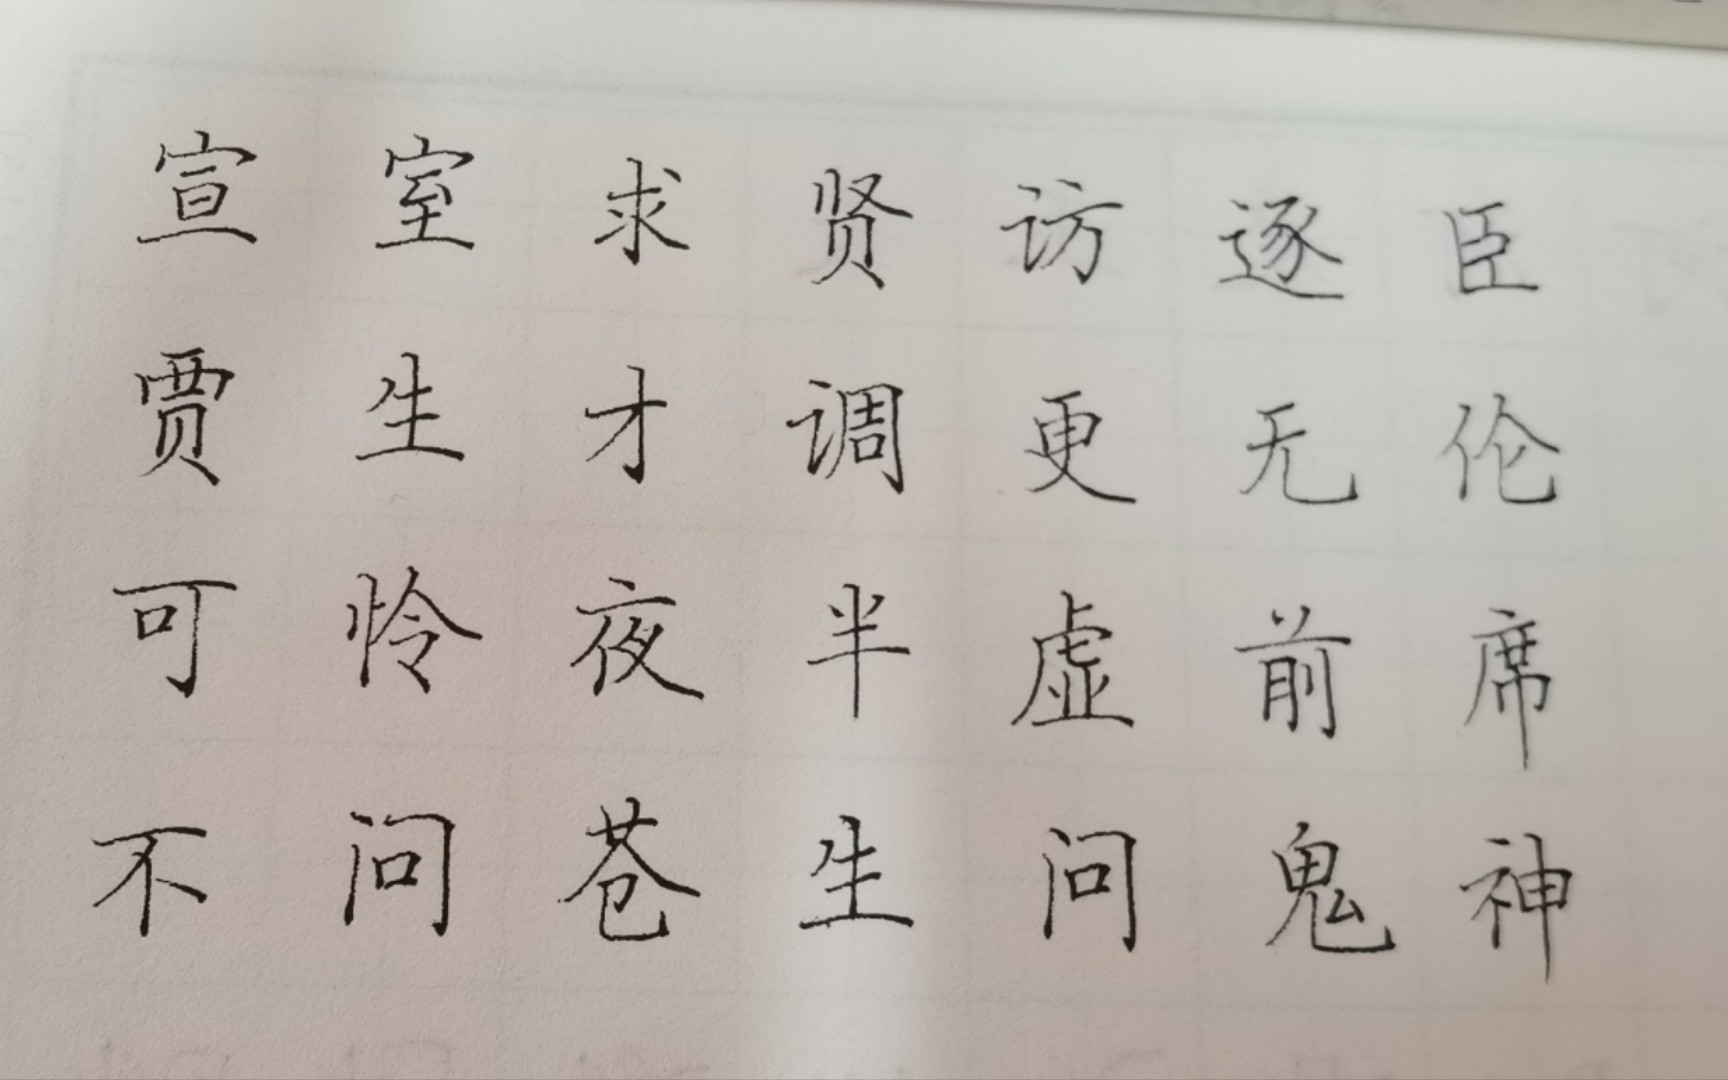 宣室求贤访逐臣
贾生才调更无伦
可怜夜半虚前席
不问苍生问鬼神